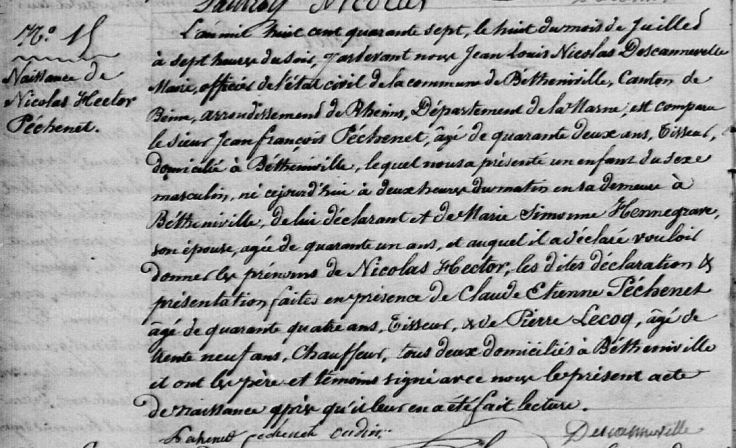 Nicolas
N.º 15
Naissance de
Nicolas Hector
Péchenet.
L'an mil huit cent quarante sept, le huit du mois de Juillet
à sept heures du soir, pardevant nous Jean Louis Nicolas Descanneville
Maire, officier de l'état civil de la commune de Bétheniville, Canton de
Beine, arrondissement de Rheims, Département de la Marne, est comparu
le sieur Jean françois Péchenet, âgé de quarante deux ans, Tisseur,
domicilié à Bétheniville, lequel nous a présenté un enfant du sexe
masculin, né cejourd'hui à deux heures du matin en sa demeure à
Bétheniville, de lui déclarant et de Marie Simonne Hennegrave,
son épouse, agée de quarante un ans, et auquel il a déclaré vouloir
donner les prénoms de Nicolas Hector, les dites déclaration &
présentation faites en présence de Claude Etienne Péchenet
âgé de quarante quatre ans, Tisseur, & de Pierre Lecoq, âgé de
trente neuf ans, Chauffeur, tous deux domiciliés à Bétheniville
et ont les père et témoins signé avec nous le présent acte
de naissance après qu'il leur en a été fait lecture.
pechenet Descanneville